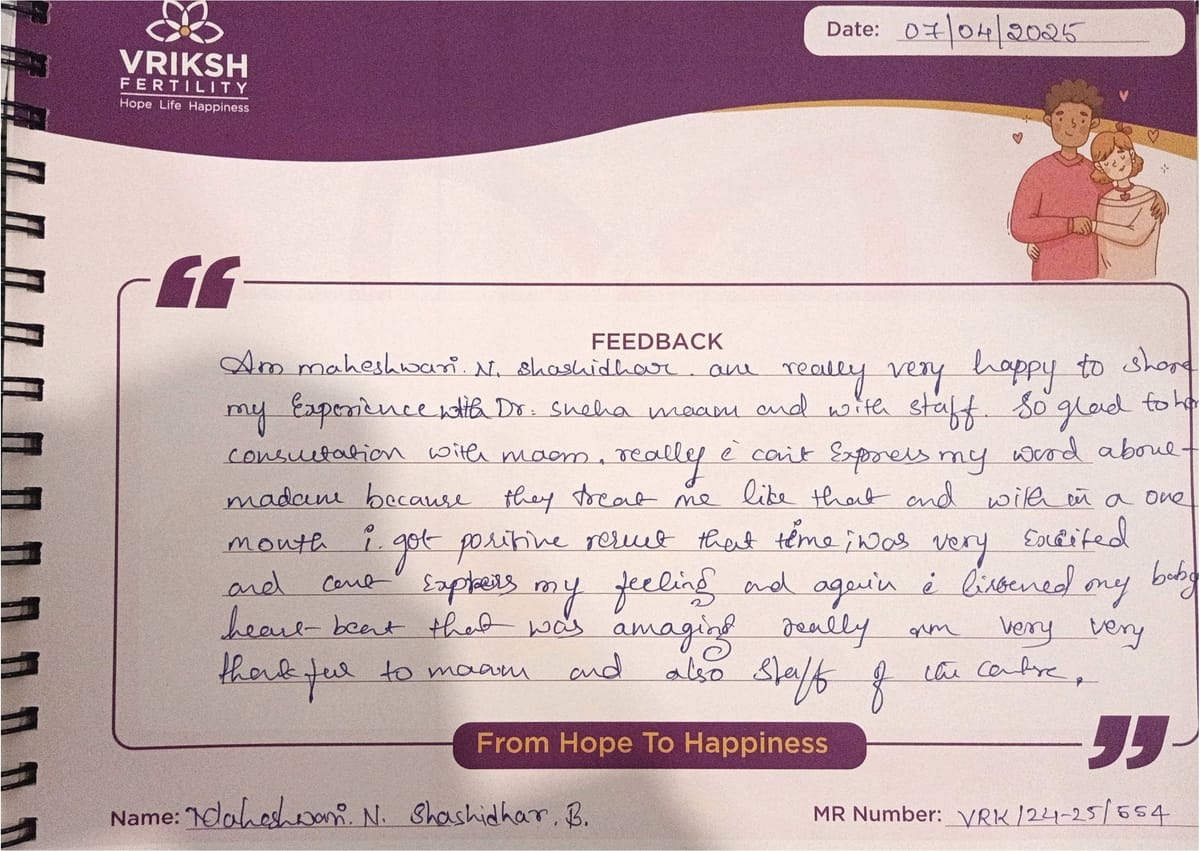 VRIKSH
FERTILITY
Hope Life Happiness
Date: 07/04/2025
FEEDBACK
Am maheshwari. N. Shashidhar. are really very happy to share
my Experience with Dr: sneha maam and with staff. So glad to
consultation with maam, really i can't Express my word about
madam because they treat me like that and with in a one
month i. got positive result that time i was very Excited
and cant Express my feeling and again i listened my baby
heart-beat that was amazing really am very very
thankful to maam and also Staff of the centre.
From Hope To Happiness
Name: Maheshwari. N. Shashidhar. B.
MR Number: VRK/24-25/554